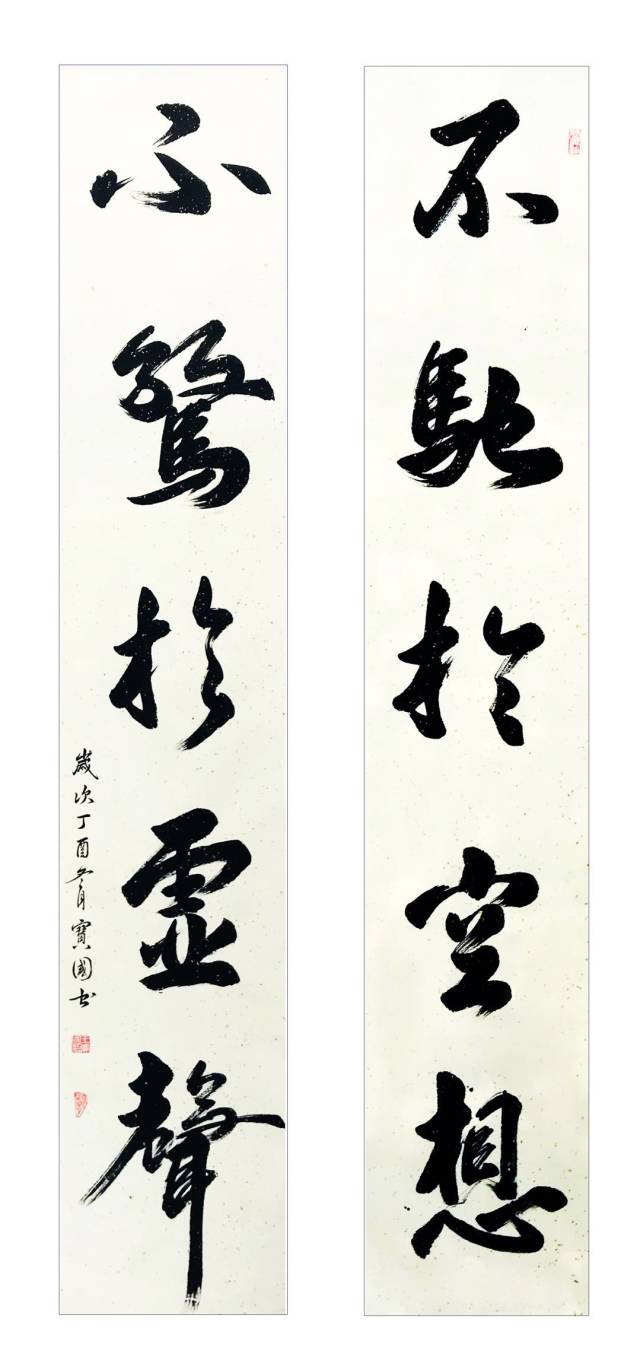 不馳於空想
不騖於虛聲
歲次丁酉冬月寶國书